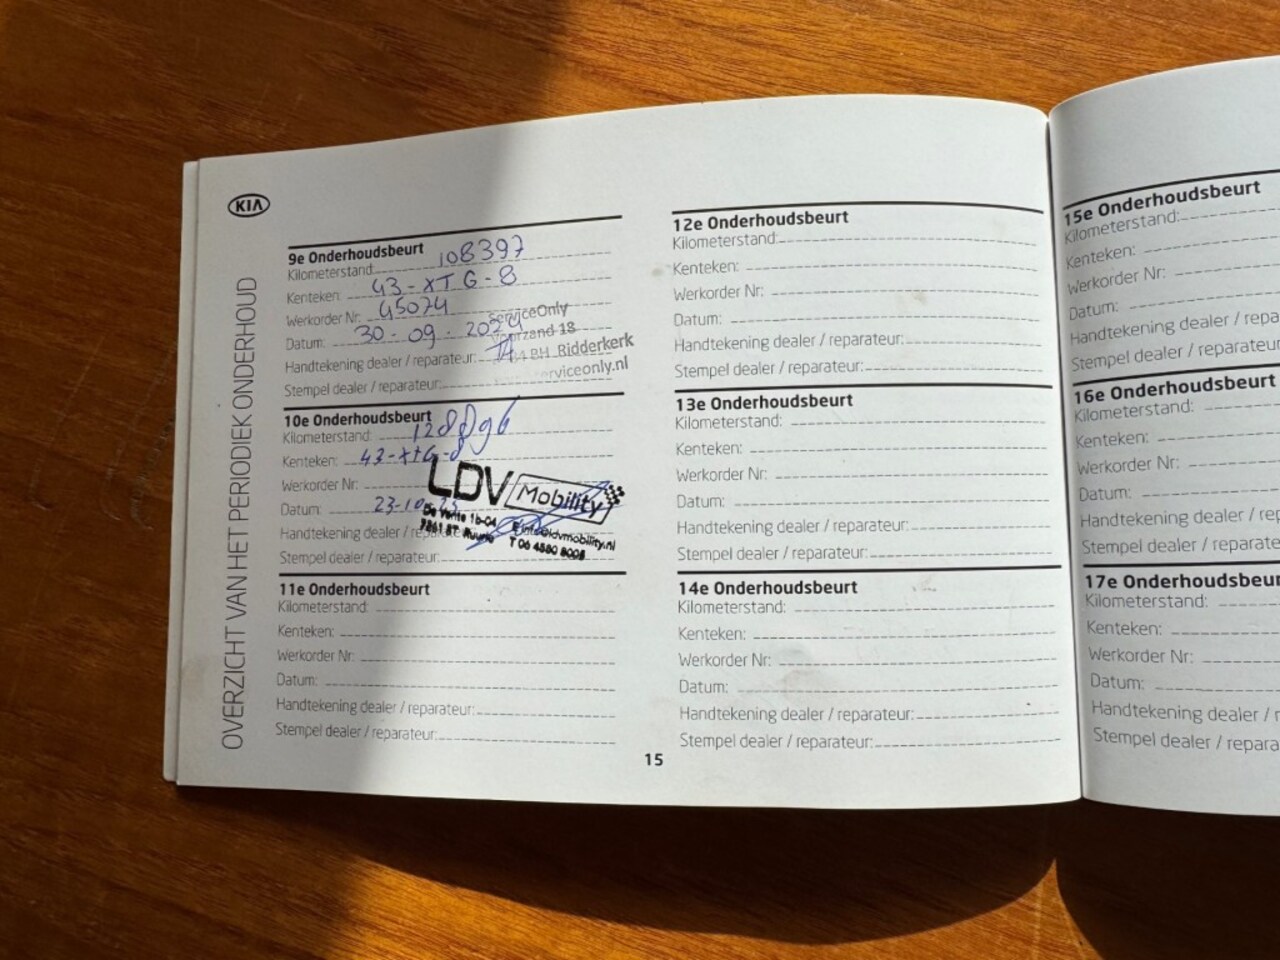 KIA
OVERZICHT VAN HET PERIODIEK ONDERHOUD
9e Onderhoudsbeurt
Kilometerstand: 108397
Kenteken: 43-XTG-8
Werkorder Nr: 45074
Datum: 30-09-2024
Handtekening dealer / reparateur:
Stempel dealer / reparateur:
ServiceOnly
18
BH Ridderkerk
serviceonly.nl
10e Onderhoudsbeurt
Kilometerstand: 128896
Kenteken: 43-XTG-8
Werkorder Nr:
Datum: 23-10-25
Handtekening dealer / reparateur:
Stempel dealer / reparateur:
LDV Mobility
De Vente 1b-04
E info@ldvmobility.nl
T 06 4880 8008
11e Onderhoudsbeurt
Kilometerstand:
Kenteken:
Werkorder Nr:
Datum:
Handtekening dealer / reparateur:
Stempel dealer / reparateur:
12e Onderhoudsbeurt
Kilometerstand:
Kenteken:
Werkorder Nr:
Datum:
Handtekening dealer / reparateur:
Stempel dealer / reparateur:
13e Onderhoudsbeurt
Kilometerstand:
Kenteken:
Werkorder Nr:
Datum:
Handtekening dealer / reparateur:
Stempel dealer / reparateur:
14e Onderhoudsbeurt
Kilometerstand:
Kenteken:
Werkorder Nr:
Datum:
Handtekening dealer / reparateur:
Stempel dealer / reparateur:
15
15e Onderhoudsbeurt
Kilometerstand:
Kenteken:
Werkorder Nr:
Datum:
Handtekening dealer / repa
Stempel dealer / reparateur
16e Onderhoudsbeurt
Kilometerstand:
Kenteken:
Werkorder Nr:
Datum:
Handtekening dealer / repa
Stempel dealer / reparate
17e Onderhoudsbeur
Kilometerstand:
Kenteken:
Werkorder Nr:
Datum:
Handtekening dealer / r
Stempel dealer / repara